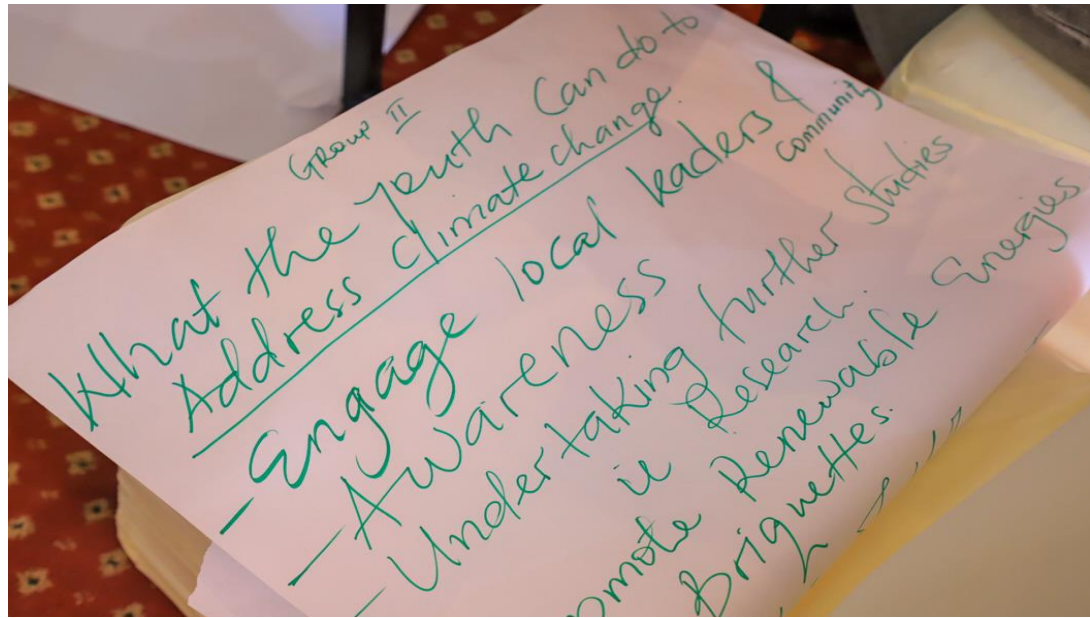 Group II
What the youth Can do to
Address climate change.
- Engage local leaders &
community
- Awareness
- Undertaking further studies
ie Research.
Renewable Energies
Briquettes.